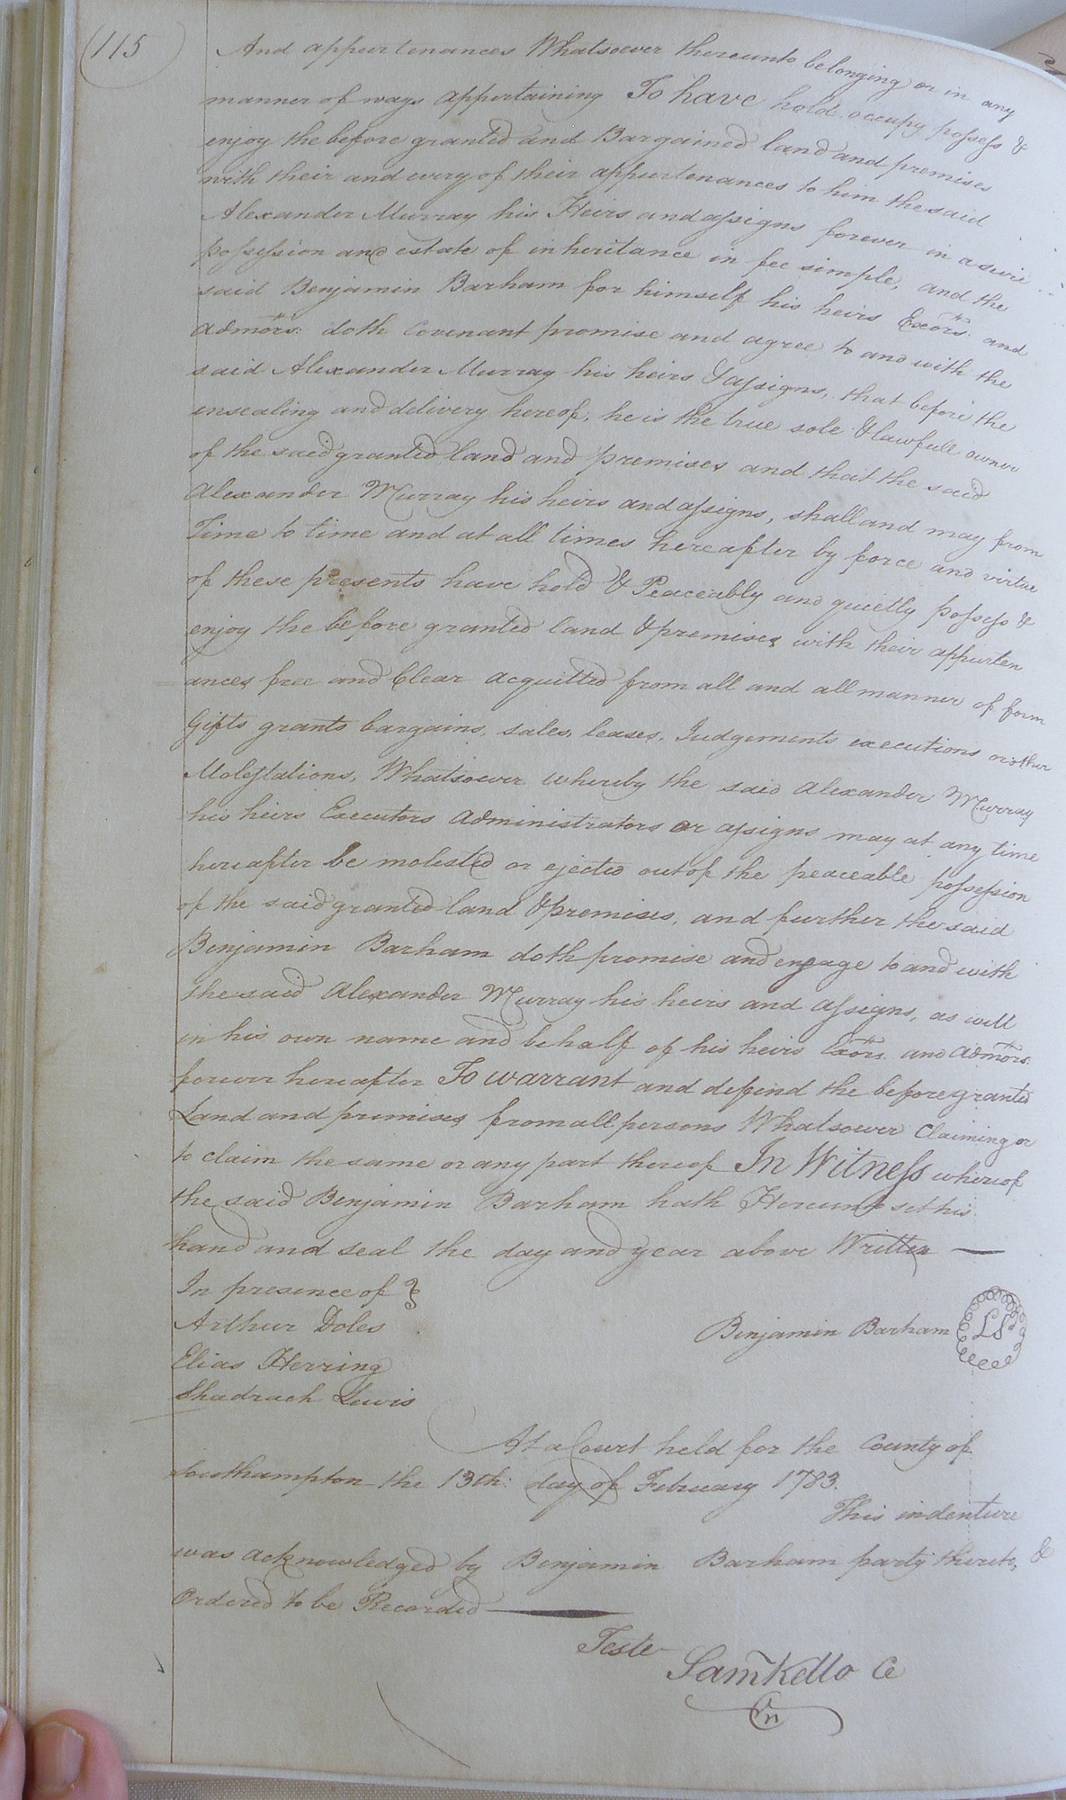 115
And appurtenances Whatsoever thereunto belonging or in any
manner of ways appertaining To have hold occupy possess &
enjoy the before granted and Bargained land and premises
with their and every of their appurtenances to him the said
Alexander Murray his Heirs and assigns forever in a
possession and estate of inheritance in fee simple, and the
said Benjamin Barham for himself his heirs Exors. and
Admors: doth Covenant promise and agree to and with the
said Alexander Murray his heirs & assigns, that before the
ensealing and delivery hereof, he is the true sole & lawfull owner
of the said granted land and premises and that the said
Alexander Murray his heirs and assigns, shall and may from
Time to time and at all times hereafter by force and virtue
of these presents have hold & Peaceably and quietly possess &
enjoy the before granted land & premises with their appurten
ances free and Clear acquitted from all and all manner of form
Gifts grants bargains, sales, leases, Judgements executions or other
Molestations, Whatsoever whereby the said Alexander Murray
his heirs Executors Administrators or assigns may at any time
hereafter be molested or ejected out of the peaceable possession
of the said granted land & premises, and further the said
Benjamin Barham doth promise and engage to and with
the said Alexander Murray his heirs and assigns, as will
in his own name and behalf of his heirs Exors. and Admors.
forever hereafter To warrant and defend the before granted
Land and premises from all persons Whatsoever Claiming or
to claim the same or any part thereof In Witness whereof
the said Benjamin Barham hath Hereunto set his
hand and seal the day and year above Written
In presence of
Arthur Doles
Benjamin Barham LS
Elias Herring
Shadrach Lewis
At a Court held for the County of
Southampton the 13th: day of February 1783.
This indenture
was acknowledged by Benjamin Barham party thereto, &
Ordered to be Recorded
Teste
Sam Kello C